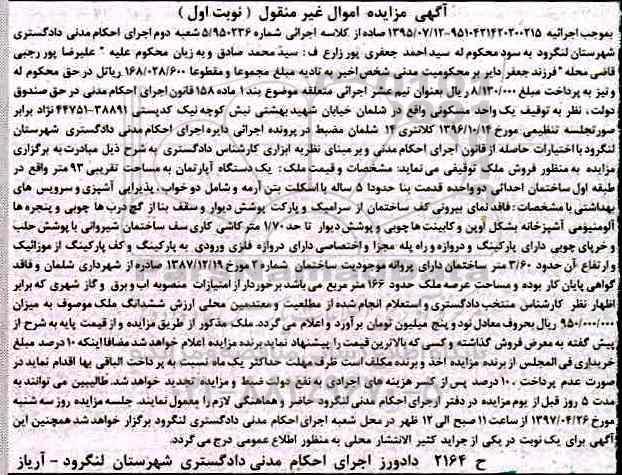 آگهی مزایده اموال غیر منقول ( نوبت اول )
بموجب اجرائیه ۹۵۱۰۴۲۱۴۲۰۲۰۰۲۱۵-۱۳۹۵/۰۷/۱۲ صادره از کلاسه اجرائی شماره ۵/۹۵۰۲۳۶ شعبه دوم اجرای احکام مدنی دادگستری
شهرستان لنگرود به سود محکوم له سید احمد جعفری پور زارع ف: سید محمد صادق و به زیان محکوم علیه * علیرضا پور رجبی
قاضی محله * فرزند جعفر دایر بر محکومیت مدنی شخص اخیر به تادیه مبلغ مجموعا و مقطوعا ۱۶۸/۰۲۸/۶۰۰ ریال در حق محکوم له
و نیز به پرداخت مبلغ ۸/۱۳۰/۰۰۰ ریال بعنوان نیم عشر اجرائی متعلقه موضوع بند ۱ ماده ۱۵۸ قانون اجرای احکام مدنی در حق صندوق
دولت، نظر به توقیف یک واحد مسکونی واقع در شلمان خیابان شهید بهشتی نبش کوچه نیک کدپستی ۳۸۸۹۱-۴۴۷۵۱ نژاد برابر
صورتجلسه تنظیمی مورخ ۱۳۹۶/۱۰/۱۴ کلانتری ۱۴ شلمان مضبط در پرونده اجرائی دایره اجرای احکام مدنی دادگستری شهرستان
لنگرود با اختیارات حاصله از قانون اجرای احکام مدنی و بر مبنای نظریه ابزاری کارشناس دادگستری به شرح ذیل مبادرت به برگزاری
مزایده به منظور فروش ملک توقیفی می نماید: مشخصات و قیمت ملک: یک دستگاه آپارتمان به مساحت تقریبی ۹۳ متر واقع در
طبقه اول ساختمان احداثی دو واحده قدمت بنا حدودا ۵ ساله با اسکلت بتن آرمه و شامل دو خواب، پذیرایی آشپزی و سرویس های
بهداشتی با مشخصات: فاقد نمای بیرونی کف ساختمان از سرامیک و پارکت پوشش دیوار و سقف بنا از گچ درب ها چوبی و پنجره ها
آلومنیومی آشپزخانه بشکل اوپن و کابینت ها چوبی و پوشش دیوار تا حد ۱/۷۰ متر کاشی کاری سف ساختمان شیروانی با پوشش حلب
و خرپای چوبی دارای پارکینگ و دروازه و راه پله مجزا و اختصاصی دارای دروازه فلزی ورودی به پارکینگ و کف پارکینگ از موزائیک
و ارتفاع آن حدود ۳/۶۰ متر ساختمان دارای پروانه موجودیت ساختمان شماره ۲ مورخ ۱۳۸۷/۱۲/۱۹ صادره از شهرداری شلمان و فاقد
گواهی پایان کار بوده و مساحت عرصه ملک حدود ۱۶۶ متر مربع می باشد برخوردار از امتیازات منصوبه اب و برق و گاز شهری که برابر
اظهار نظر کارشناس منتخب دادگستری و استعلام انجام شده از مطلعیت و معتدمین محلی ارزش ششدانگ ملک موصوف به میزان
۹۵۰/۰۰۰/۰۰۰ ریال بحروف معادل نود و پنج میلیون تومان برآورد و اعلام می گردد. ملک مذکور از طریق مزایده و از قیمت پایه به شرح از
پیش گفته به معرض فروش گذاشته و کسی که بالاترین قیمت را پیشنهاد نماید برنده مزایده اعلام خواهد شد مضافا اینکه ۱۰ درصد مبلغ
خریداری فی المجلس از برنده مزایده اخذ و برنده مکلف است ظرف مهلت حداکثر یک ماه نسبت به پرداخت الباقی بها اقدام نماید در
صورت عدم پرداخت ، ۱۰ درصد پس از کسر هزینه های اجرادی به نفع دولت ضبط و مزایده تجدید خواهد شد. طالبیین می توانند به
مدت ۵ روز قبل از یوم مزایده در دفتر ازجرای احکام مدنی لنگرود حاضر و هماهنگی لازم را معمول نمایند. جلسه مزایده روز سه شنبه
مورخ ۱۳۹۷/۰۴/۲۶ از ساعت ۱۱ صبح الی ۱۲ ظهر در محل شعبه اجرای احکام مدنی دادگستری لنگرود برگزار خواهد شد همچنین این
آگهی برای یک نوبت در یکی از جراید کثیر الانتشار محلی به منظور اطلاع عمومی درج می گردد.
ح ۲۱۶۴ دادورز اجرای احکام مدنی دادگستری شهرستان لنگرود - آریاز